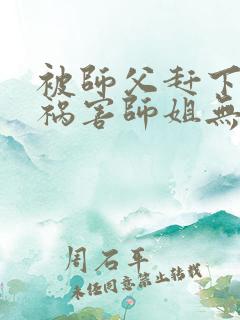 被師父赶下
祸害師姐無
周石平
未经同意禁止转载